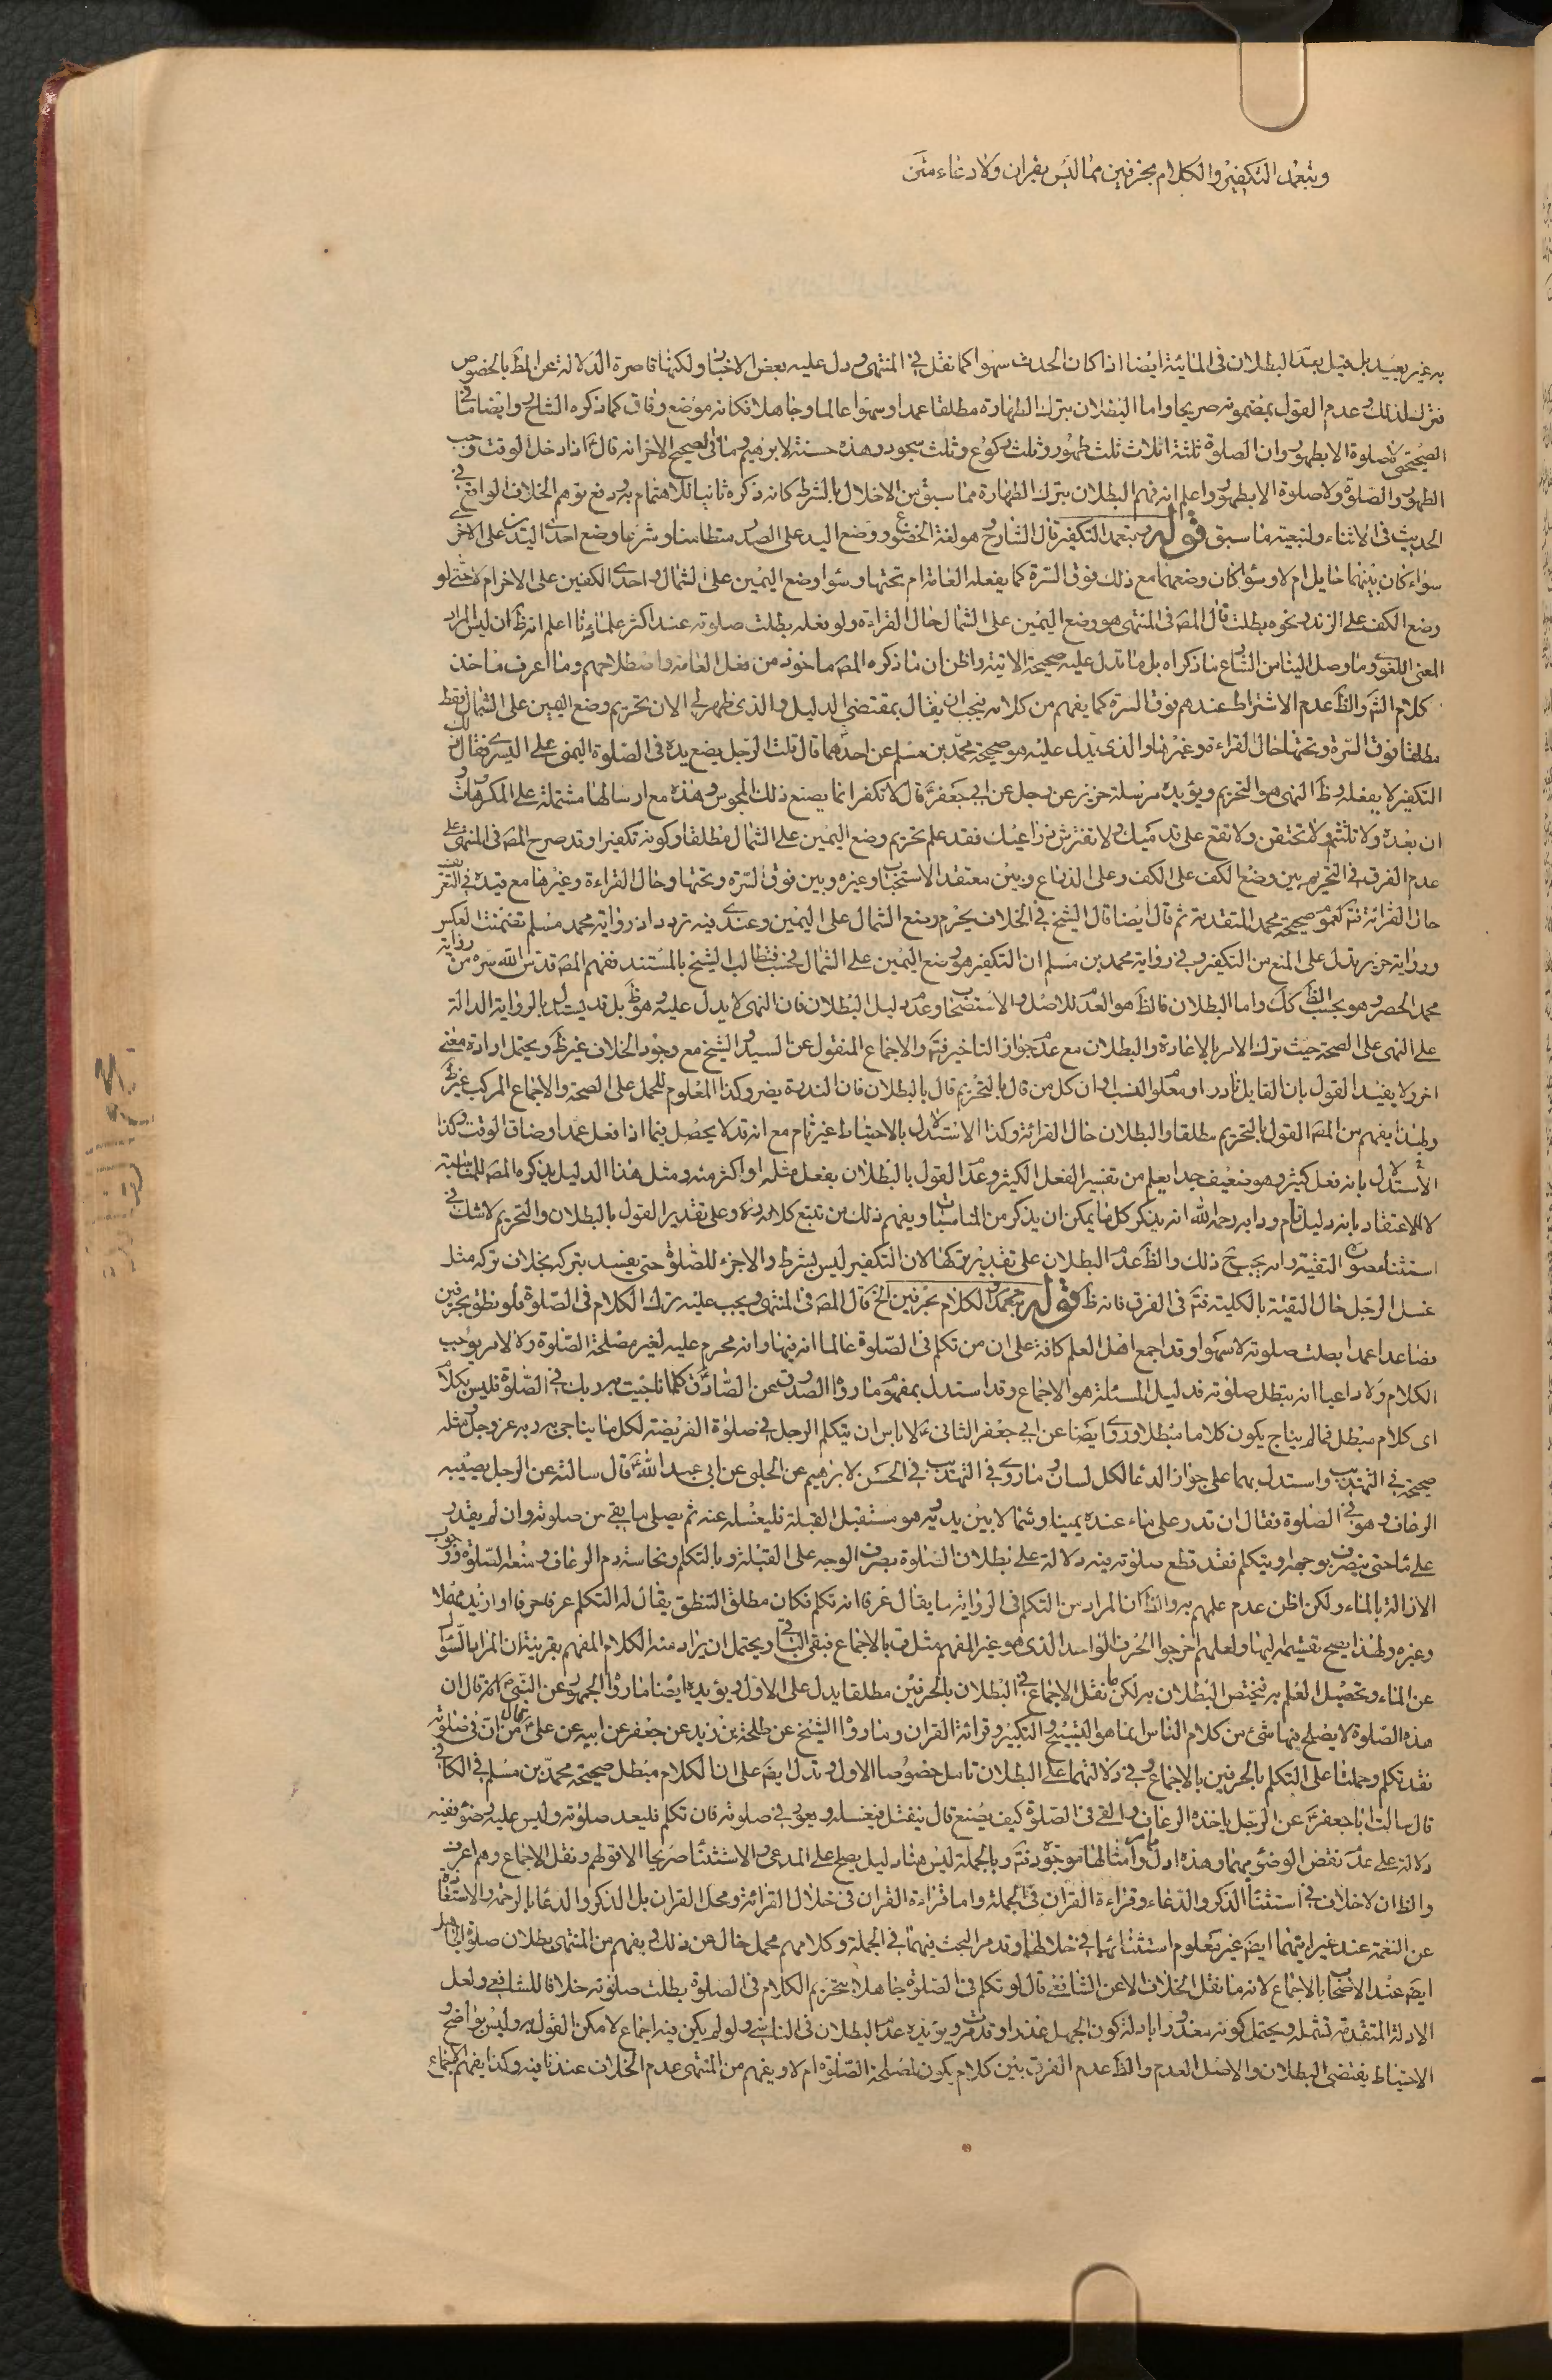 وبتعمد التكفير والكلام بحرفين مما ليس بقران ولا دعاء متن
به غير بعيد بل قيل بعدم البطلان فى المائية ايضا اذا كان الحدث سهوا كما نقل فى المنتهى ودل عليه بعض الاخبار ولكنها قاصرة الدلالة عن المط بالخصوص
فترك لذلك وعدم القول بمضمونه صريحا واما البطلان بترك الطهارة مطلقا عمدا وسهوا عالما وجاهلا فكانه موضع وفاق كما ذكره الشارح وايضا ما فى
الصحيح لا صلوة الا بطهور وان الصلوة ثلثة اثلاث ثلث طهور وثلث ركوع وثلث سجود وهذه حسنة لابرهيم وما فى الصحيح الاخر انه قال اذا دخل الوقت وجب
الطهور والصلوة ولا صلوة الا بطهور واعلم انه فهم البطلان بترك الطهارة مما سبق من الاخلال بالشرط كانه ذكره ثانيا للاهتمام به ودفع توهم الخلاف الواقع فى
الحديث فى الاثناء ولتبعية ما سبق قوله وبتعمد التكفير قال الشارح هو لغة الخضوع ووضع اليد على الصدر متطامنا وشرعا وضع احدى اليدين على الاخرى
سواء كان بينهما حايل ام لا وسواء كان وضعهما مع ذلك فوق السرة كما يفعله العامة ام تحتها وسوا وضع اليمين على الشمال واحدى الكفين على الاخر ام لا حتى لو
وضع الكف على الزند ونحوه بطلت قال المصه فى المنتهى هو وضع اليمين على الشمال حال القراءة ولو فعله بطلت صلوته عند اكثر علماءنا اعلم انه ظ ان ليس المراد
المعنى اللغوى وما وصل الينا من الشارع ما ذكراه بل ما تدل عليه صحيحة الاتية واظن ان ما ذكره المصه ماخوذ من فعل العامة واصطلاحهم وما اعرف ماخذ
كلام الش والظ عدم الاشتراط عندهم فوق السرة كما يفهم من كلامه فيجب ان يقال بمقتضى الدليل والذى ظهر لى الان تحريم وضع اليمين على الشمال فقط
مطلقا فوق السرة وتحتها حال القراءة وغيرها والذى يدل عليه هو صحيحة محمد بن مسلم عن احدهما قال قلت الرجل يضع يده فى الصلوة اليمنى على اليسرى فقال ذلك
التكفير لا يفعله وظ النهى هو التحريم ويؤيده مرسلة حريز عن رجل عن ابى جعفر قال لا تكفر انما يصنع ذلك المجوس وهذه مع ارسالها مشتملة على المكروهات
ان بعده ولا تلثم ولا تحتفن ولا تقع على قدميك ولا تفترش ذراعيك فقد علم تحريم وضع اليمين على الشمال مطلقا وكونه تكفيرا وقد صرح المصه فى المنتهى على
عدم الفرق فى التحريم بين وضع الكف على الكف وعلى الذراع وبين معتقد الاستحباب وغيره وبين فوق السرة وتحتها وحال القراءة وغيرها مع قيده فى التعريف
حال القرائة فت لعموم صحيحة محمد المتقدمة ثم قال ايضا قال الشيخ فى الخلاف يحرم وضع الشمال على اليمين وعندى فيه تردد اذ رواية محمد مسلم تضمنت العكس
ورواية حريز تدل على المنع من التكفير وفى رواية محمد بن مسلم ان التكفير هو وضع اليمين على الشمال فحسب فنطالب الشيخ بالمستند ففهم المصه قدس الله سره من رواية
محمد الحصر وهو بحسب الظ كك واما البطلان فالظ هو العدم للاصل والاستصحاب وعدم دليل البطلان فان النهى لا يدل عليه وهو ظ بل قد يستدل بالرواية الدالة
على النهى على الصحة حيث ترك الامر بالاعادة والبطلان مع عدم جواز التاخير فت والاجماع المنقول عن السيد والشيخ مع وجود الخلاف غير ظ ويحتمل ارادة معنى
اخر ولا يفيد القول بان القايل نادر او معلوم النسب وان كل من قال بالتحريم قال بالبطلان فان الندرة يضر وكذا المعلوم للحمل على الصحة والاجماع المركب غير ظ
ولهذا يفهم من المصه القول بالتحريم مطلقا والبطلان حال القرائة وكذا الاستدلال بالاحتياط غير تام مع انه قد لا يحصل فيما اذا فعل عمدا وضاق الوقت وكذا
الاستدلال بانه فعل كثير وهو ضعيف جدا يعلم من تفسير الفعل الكثير وعدم القول بالبطلان بفعل مثله او اكثر منه ومثل هذا الدليل يذكره المصه للمناسبة
لا للاعتقاد بانه دليل تام ودابه رحمه الله انه يذكر كل ما يمكن ان يذكر من المناسبات ويفهم ذلك من تتبع كلامه ره وعلى تقدير القول بالبطلان والتحريم لا شك فى
استثناء صورة التقية وانه يجب ح ذلك والظ عدم البطلان على تقدير تركها لان التكفير ليس بشرط والاجزء للصلوة حتى يفسد بتركه بخلاف تركه مثل
غسل الرجل حال التقية بالكلية فت فى الفرق فانه ظ قوله وبتعمد الكلام بحرفين الخ قال المصه فى المنتهى ويجب عليه ترك الكلام فى الصلوة فلو نطق بحرفين
فصاعدا عمدا بطلت صلوته لا سهوا وقد اجمع اهل العلم كافة على ان من تكلم فى الصلوة عالما انه فيها وانه محرم عليه لغير مصلحة الصلوة ولا لامر يوجب
الكلام ولا داعيا انه يبطل صلوته فدليل المسئلة هو الاجماع وقد استدل بمفهوم ما رواه الصدوق عن الصادق كلما ناجيت به ربك فى الصلوة فليس بكلام
اى كلام مبطل فما لم يناج يكون كلاما مبطلا وروى ايضا عن ابى جعفر الثانى ع لا باس ان يتكلم الرجل فى صلوة الفريضة لكل ما يناجى به ربه عز وجل ومثله
صحيحة فى التهذيب واستدل بهما على جواز الدعا لكل لسان وما روى فى التهذيب فى الحسن لابرهيم عن الحلبى عن ابى عبد الله قال سالته عن الرجل يصيبه
الرعاف وهو فى الصلوة فقال ان قدر على ماء عنده يمينا وشمالا بين يديه وهو مستقبل القبلة فليغسله عنه ثم يصلى ما بقى من صلوته وان لم يقدر
على ماء حتى ينصرف بوجهه او يتكلم فقد قطع صلوته فيه دلالة على بطلان الصلوة بصرف الوجه على القبلة وبالتكلم ونجاسة دم الرعاف ومنعه للصلوة ووجوب
الازالة بالماء ولكن اظن عدم علمهم به والظ ان المراد من التكلم فى الرواية ما يقال عرفا انه تكلم فكان مطلق التنطق يقال له التكلم عرفا حرفا او ازيد مهملا
وغيره ولهذا يصح تقسيمه اليها ولعلهم اخرجوا الحرف الواحد الذى هو غير المفهم مثل ق بالاجماع فبقى الباقى ويحتمل ان يراد منه الكلام المفهم بقرينة ان المراد بالسؤال
عن الماء وتحصيل العلم به فيختص البطلان به لكن ما نقل الاجماع فى البطلان بالحرفين مطلقا يدل على الاول ويؤيده ايضا ما رواه الجمهور عن النبى ص انه قال ان
هذه الصلوة لا يصلح فيها شئ من كلام الناس انما هو التسبيح والتكبير وقرائة القران وما رواه الشيخ عن طلحة بن زيد عن جعفر عن ابيه عن على ع قال من ان فى صلوته
فقد تكلم وحملنا على التكلم بالحرفين بالاجماع وفى دلالتهما على البطلان تامل خصوصا الاول وتدل ايضه على ان الكلام مبطل صحيحة محمد بن مسلم فى الكافى
قال سالت ابا جعفر عن الرجل ياخذه الرعاف والقى فى الصلوة كيف يصنع قال ينفتل فيغسله ويعود فى صلوته فان تكلم فليعد صلوته وليس عليه وضوء ففيه
دلالة على عدم نقض الوضوء بهما وهذه ادل وامثالها موجودة فت وبالجملة ليس هنا دليل يصلح على المدعى والاستثناء صريحا الا قولهم ونقل الاجماع وهم اعرف
والظ ان لا خلاف فى استثناء الذكر والدعاء وقراءة القران فى الجملة واما قراءة القران فى خلال القرائة ومحل القران بل الذكر والدعا بالرحمة والاستعاذة
عن النقمة عند غير ايتهما ايضه غير معلوم استثنائها فى خلالها وقد مر البحث فيهما فى الجملة وكلامهم مجمل خال عن ذلك ويفهم من المنتهى بطلان صلوة الجاهل
ايضه عند الاصحاب بالاجماع لانه ما نقل الخلاف الا عن الشافعى قال لو تكلم فى الصلوة جاهلا بتحريم الكلام فى الصلوة بطلت صلوته خلافا للشافعى ولعل
الادلة المتقدمة تشمله ويحتمل كونه معذورا بادلة كون الجهل عذرا وقد مرت ويؤيده عدم البطلان فى الناسى ولو لم يكن فيه اجماع لامكن القول به وليس بواضح و
الاحتياط يقتضى البطلان والاصل العدم والظ عدم الفرق بين كلام يكون لمصلحة الصلوة ام لا ويفهم من المنتهى عدم الخلاف عندنا فيه وكذا يفهم الاجماع